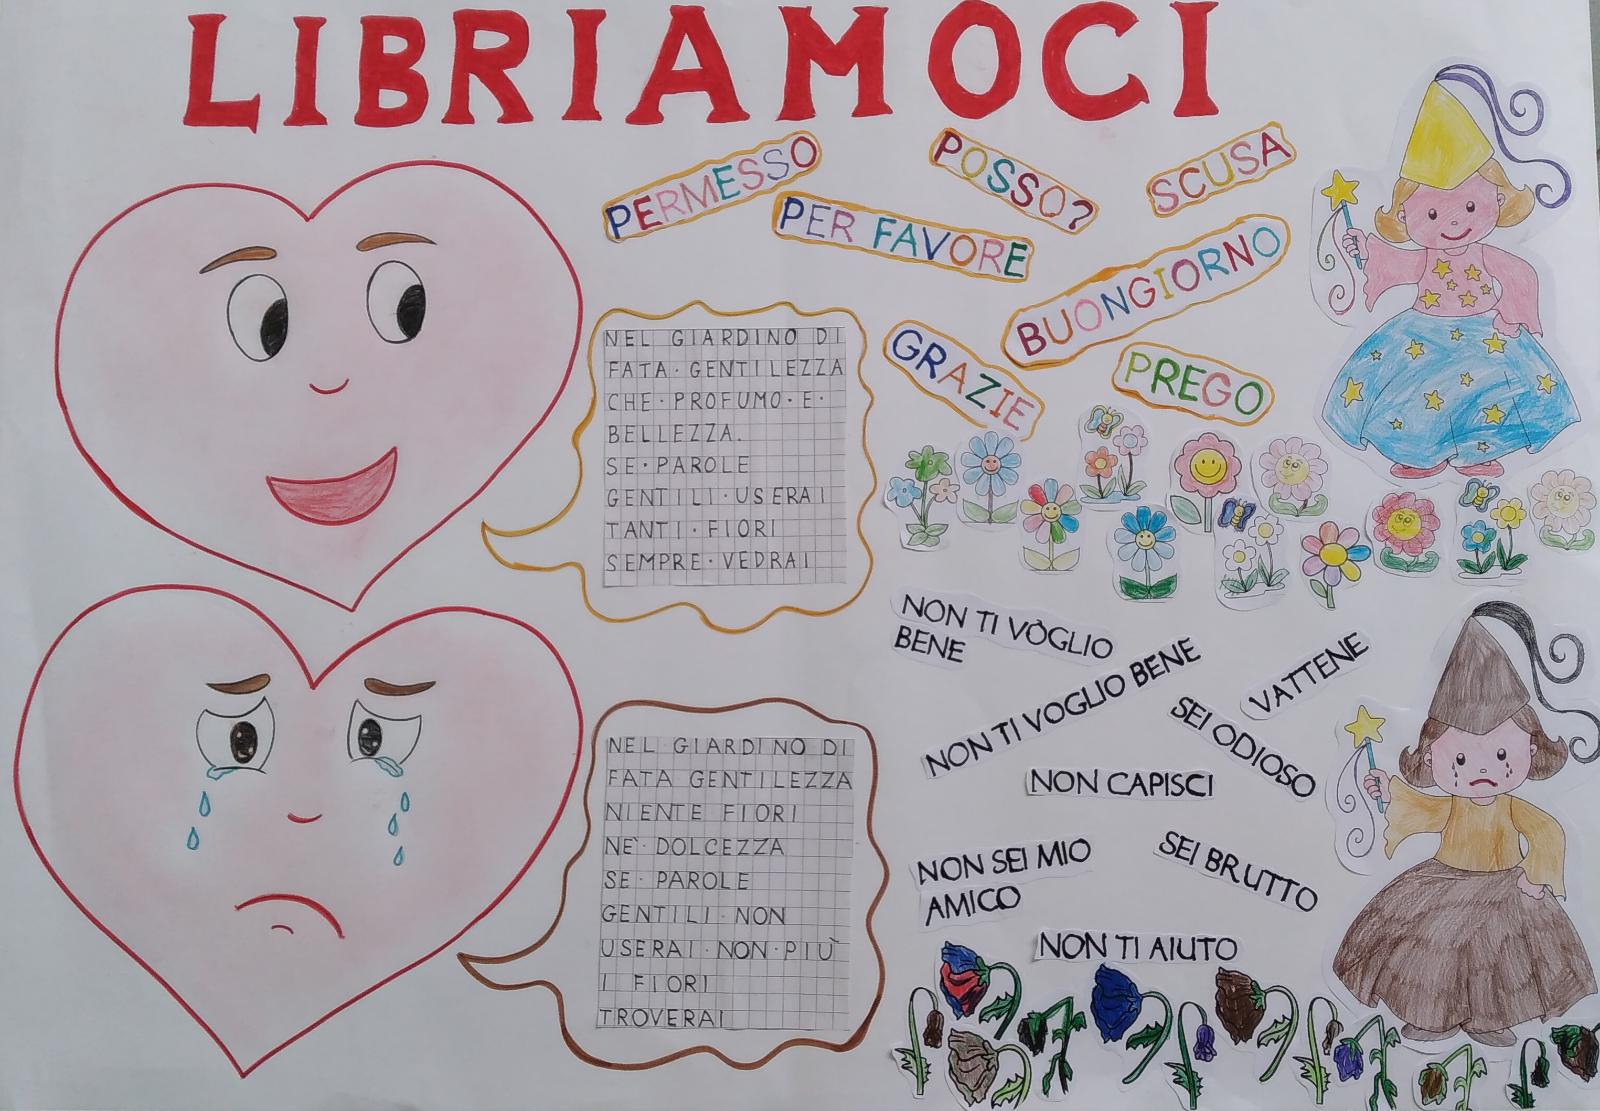 LIBRIAMOCI
PERMESSO
POSSO?
SCUSA
PER FAVORE
BUONGIORNO
GRAZIE
PREGO
NEL GIARDINO DI
FATA·GENTILEZZA
CHE·PROFUMO·E·
BELLEZZA.
SE·PAROLE
GENTILI·USERAI
TANTI·FIORI
SEMPRE·VEDRAI
NON TI VOGLIO
BENE
NON TI VOGLIO BENE
VATTENE
SEI ODIOSO
NON CAPISCI
NON SEI MIO
AMICO
SEI BRUTTO
NON TI AIUTO
NEL GIARDINO DI
FATA GENTILEZZA
NIENTE FIORI
NE' DOLCEZZA
SE·PAROLE
GENTILI·NON
USERAI·NON·PIÙ
I FIORI
TROVERAI